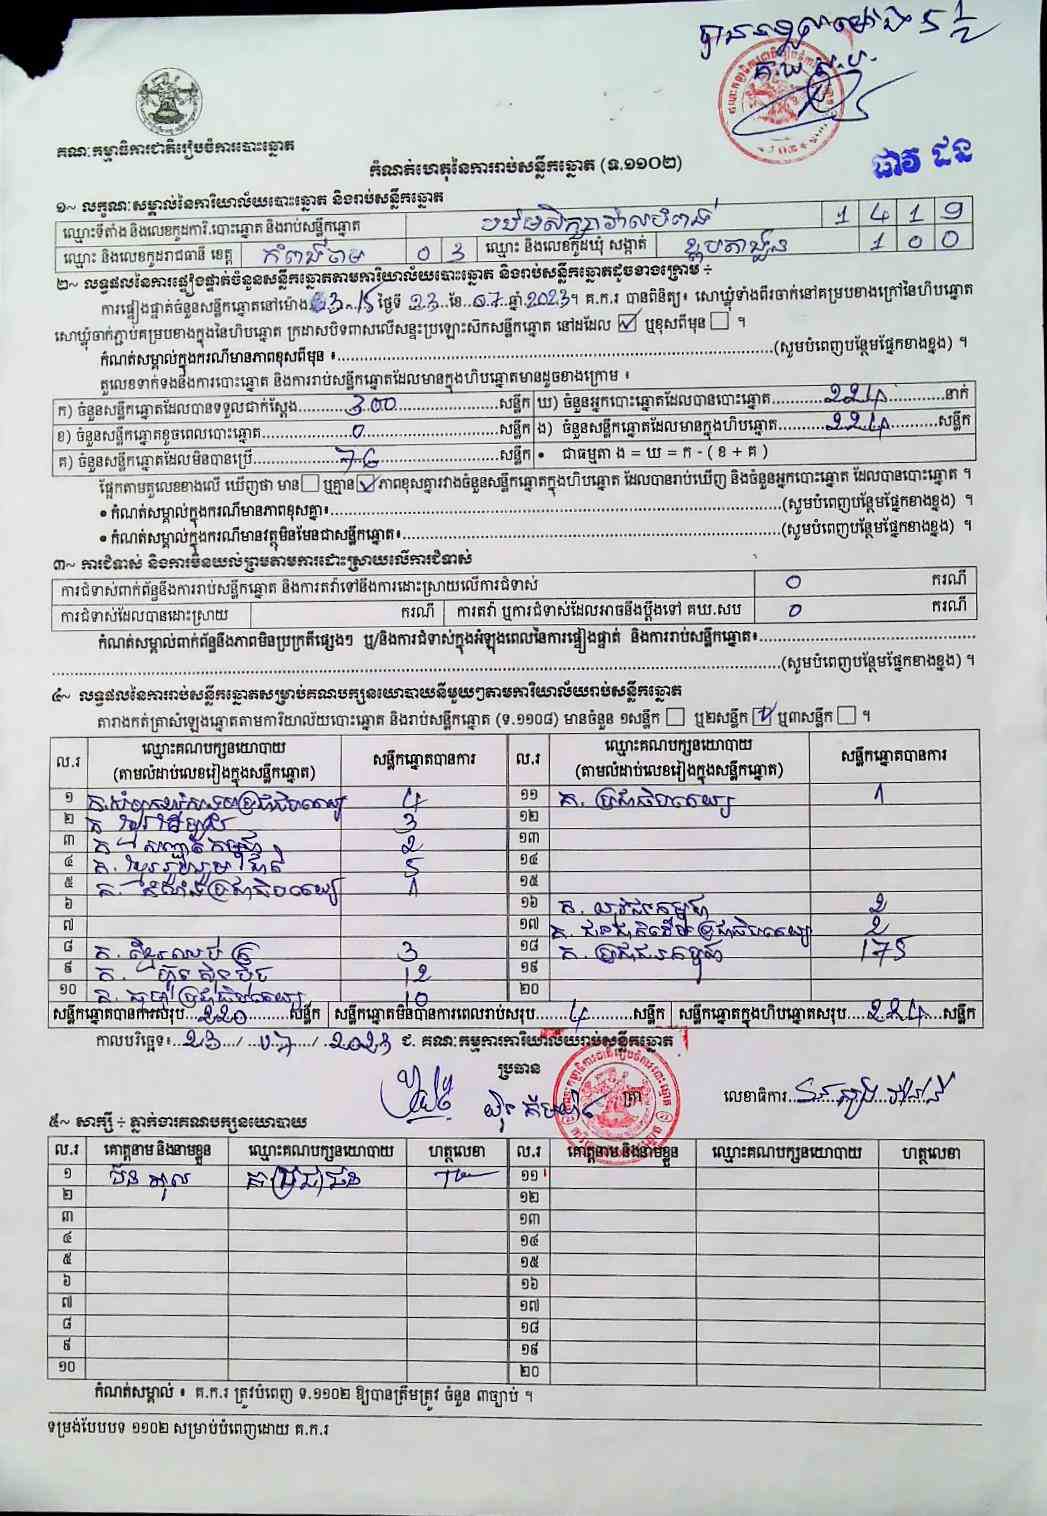 គណៈកម្មាធិការជាតិរៀបចំការបោះឆ្នោត
កំណត់ហេតុនៃការរាប់សន្លឹកឆ្នោត (ទ.១១០២)
១~ លក្ខណៈសម្គាល់នៃការិយាល័យបោះឆ្នោត និងរាប់សន្លឹកឆ្នោត
ឈ្មោះទីតាំង និងលេខកូដការិ.បោះឆ្នោត និងរាប់សន្លឹកឆ្នោត 1 4 1 9
ឈ្មោះ និងលេខកូដរាជធានី ខេត្ត កំពង់ចាម 0 3 ឈ្មោះ និងលេខកូដឃុំ សង្កាត់ 1 0 0
២~ លទ្ធផលនៃការផ្ទៀងផ្ទាត់ចំនួនសន្លឹកឆ្នោតតាមការិយាល័យបោះឆ្នោត និងរាប់សន្លឹកឆ្នោតដូចខាងក្រោម ÷
ការផ្ទៀងផ្ទាត់ចំនួនសន្លឹកឆ្នោតនៅម៉ោង 3 15 ថ្ងៃទី 23 ខែ 07 ឆ្នាំ 2023។ គ.ក.រ បានពិនិត្យ៖ សោឃ្លុំទាំងពីរចាក់នៅគម្របខាងក្រៅនៃហិបឆ្នោត
សោឃ្លុំចាក់ភ្ជាប់គម្របខាងក្នុងនៃហិបឆ្នោត ក្រដាសបិទពាសលើសន្ទះប្រឡោះស៊កសន្លឹកឆ្នោត នៅដដែល ☑ ឬខុសពីមុន ☐ ។
កំណត់សម្គាល់ក្នុងករណីមានភាពខុសពីមុន ៖ (សូមបំពេញបន្ថែមផ្នែកខាងខ្នង) ។
តួលេខទាក់ទងនឹងការបោះឆ្នោត និងការរាប់សន្លឹកឆ្នោតដែលមានក្នុងហិបឆ្នោតមានដូចខាងក្រោម ៖
ក) ចំនួនសន្លឹកឆ្នោតដែលបានទទួលជាក់ស្តែង 300 សន្លឹក ឃ) ចំនួនអ្នកបោះឆ្នោតដែលបានបោះឆ្នោត 224 នាក់
ខ) ចំនួនសន្លឹកឆ្នោតខូចពេលបោះឆ្នោត 0 សន្លឹក ង) ចំនួនសន្លឹកឆ្នោតដែលមានក្នុងហិបឆ្នោត 224 សន្លឹក
គ) ចំនួនសន្លឹកឆ្នោតដែលមិនបានប្រើ 76 សន្លឹក • ជាធម្មតា ង = ឃ = ក - ( ខ + គ )
ផ្អែកតាមតួលេខខាងលើ ឃើញថា មាន ☐ ឬគ្មាន ☑ ភាពខុសគ្នារវាងចំនួនសន្លឹកឆ្នោតក្នុងហិបឆ្នោត ដែលបានរាប់ឃើញ និងចំនួនអ្នកបោះឆ្នោត ដែលបានបោះឆ្នោត ។
• កំណត់សម្គាល់ក្នុងករណីមានភាពខុសគ្នា៖ (សូមបំពេញបន្ថែមផ្នែកខាងខ្នង) ។
• កំណត់សម្គាល់ក្នុងករណីមានវត្ថុមិនមែនជាសន្លឹកឆ្នោត៖ (សូមបំពេញបន្ថែមផ្នែកខាងខ្នង) ។
៣~ ការជំទាស់ និងការមិនយល់ព្រមតាមការដោះស្រាយលើការជំទាស់
ការជំទាស់ពាក់ព័ន្ធនឹងការរាប់សន្លឹកឆ្នោត និងការតវ៉ាទៅនឹងការដោះស្រាយលើការជំទាស់ 0 ករណី
ការជំទាស់ដែលបានដោះស្រាយ ករណី ការតវ៉ា ឬការជំទាស់ដែលអាចនឹងប្តឹងទៅ គឃ.សប 0 ករណី
កំណត់សម្គាល់ពាក់ព័ន្ធនឹងភាពមិនប្រក្រតីផ្សេងៗ ឬ/និងការជំទាស់ក្នុងអំឡុងពេលនៃការផ្ទៀងផ្ទាត់ និងការរាប់សន្លឹកឆ្នោត៖
(សូមបំពេញបន្ថែមផ្នែកខាងខ្នង) ។
៤~ លទ្ធផលនៃការរាប់សន្លឹកឆ្នោតសម្រាប់គណបក្សនយោបាយនីមួយៗតាមការិយាល័យរាប់សន្លឹកឆ្នោត
តារាងកត់ត្រាសំឡេងឆ្នោតតាមការិយាល័យបោះឆ្នោត និងរាប់សន្លឹកឆ្នោត (ទ.១១០៨) មានចំនួន ១សន្លឹក ☐ ឬ២សន្លឹក ☑ ឬ៣សន្លឹក ☐ ។
ល.រ ឈ្មោះគណបក្សនយោបាយ (តាមលំដាប់លេខរៀងក្នុងសន្លឹកឆ្នោត) សន្លឹកឆ្នោតបានការ ល.រ ឈ្មោះគណបក្សនយោបាយ (តាមលំដាប់លេខរៀងក្នុងសន្លឹកឆ្នោត) សន្លឹកឆ្នោតបានការ
១ 4 ១១ គ. ប្រជាធិបតេយ្យ 1
២ 3 ១២
៣ 2 ១៣
៤ គ. ខ្មែររួបរួមជាតិ 5 ១៤
៥ 1 ១៥
៦ ១៦ គ. យុវជនកម្ពុជា 2
៧ ១៧ 2
៨ 3 ១៨ គ. ប្រជាជនកម្ពុជា 175
៩ គ. ហ៊្វុនស៊ិនប៉ិច 12 ១៩
១០ 10 ២០
សន្លឹកឆ្នោតបានការសរុប 220 សន្លឹក សន្លឹកឆ្នោតមិនបានការពេលរាប់សរុប 4 សន្លឹក សន្លឹកឆ្នោតក្នុងហិបឆ្នោតសរុប 224 សន្លឹក
កាលបរិច្ឆេទ៖ 23 / 07 / 2023 ជ. គណៈកម្មការការិយាល័យរាប់សន្លឹកឆ្នោត
ប្រធាន
ត្រា
លេខាធិការ
៥~ សាក្សី ÷ ភ្នាក់ងារគណបក្សនយោបាយ
ល.រ គោត្តនាម និងនាមខ្លួន ឈ្មោះគណបក្សនយោបាយ ហត្ថលេខា ល.រ គោត្តនាម និងនាមខ្លួន ឈ្មោះគណបក្សនយោបាយ ហត្ថលេខា
១ គ ប្រជាជន ១១
២ ១២
៣ ១៣
៤ ១៤
៥ ១៥
៦ ១៦
៧ ១៧
៨ ១៨
៩ ១៩
១០ ២០
កំណត់សម្គាល់ ៖ គ.ក.រ ត្រូវបំពេញ ទ.១១០២ ឱ្យបានត្រឹមត្រូវ ចំនួន ៣ច្បាប់ ។
ទម្រង់បែបបទ ១១០២ សម្រាប់បំពេញដោយ គ.ក.រ